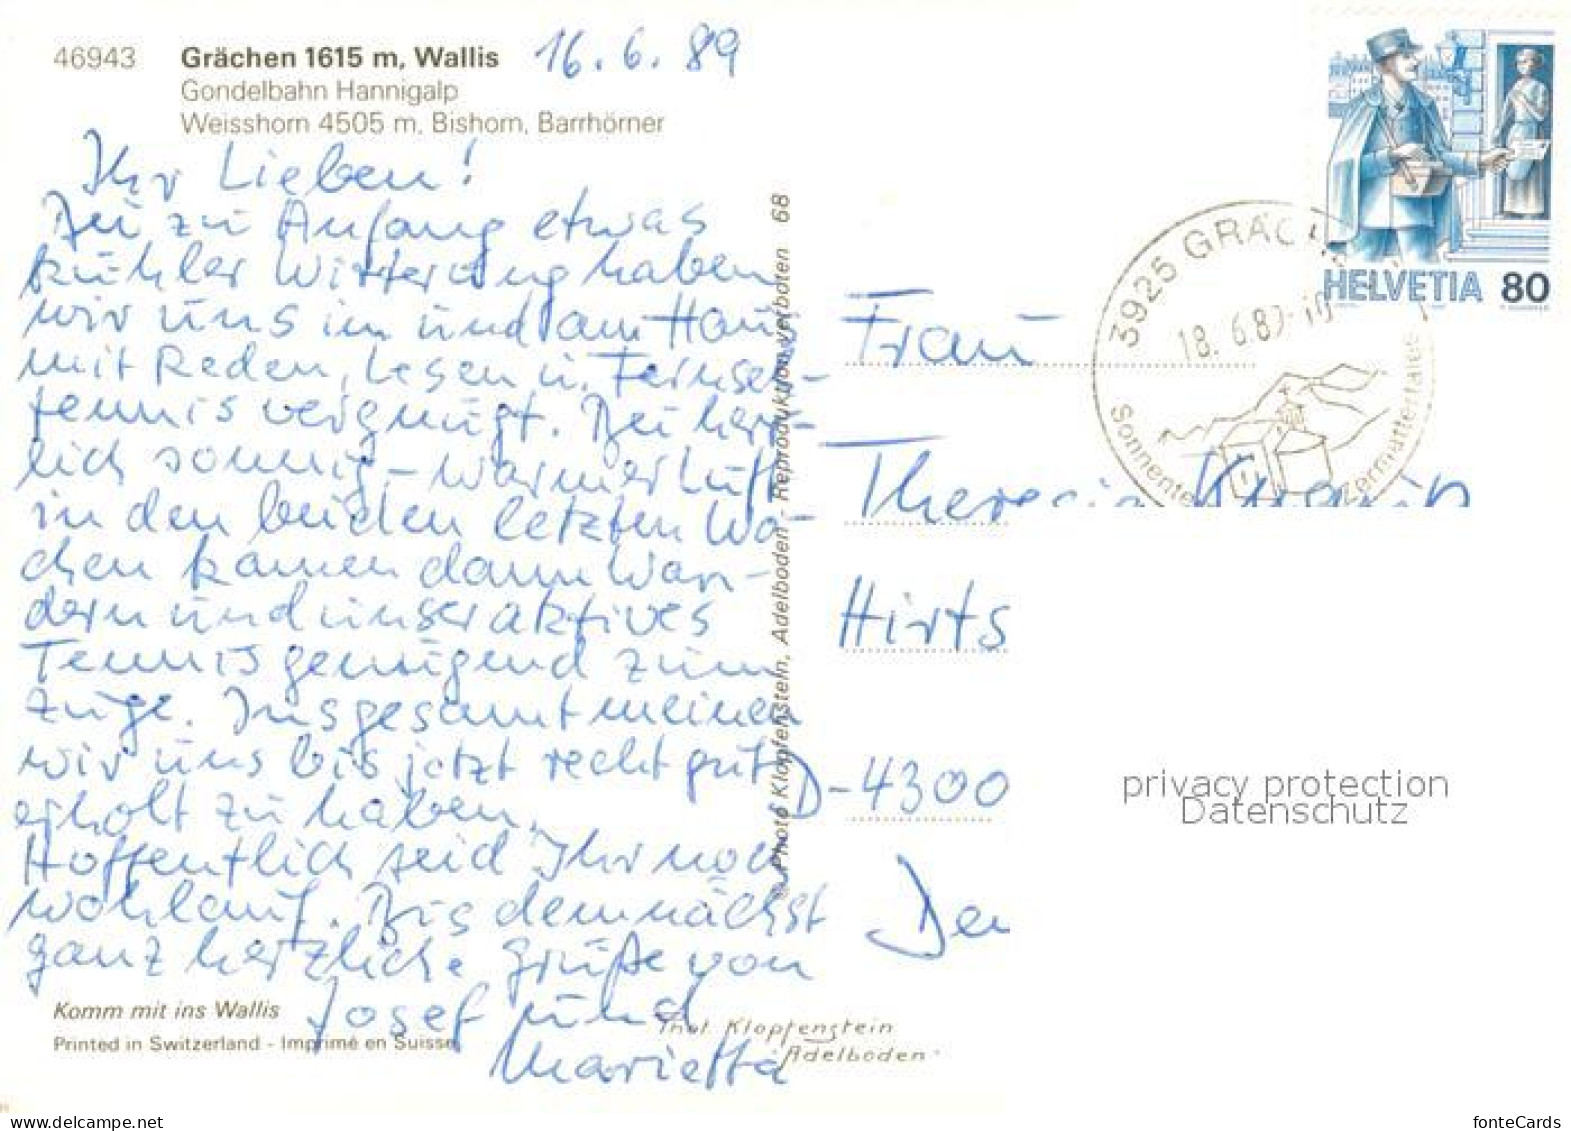 46943 Grächen 1615 m, Wallis 16.6.89
Gondelbahn Hannigalp
Weisshorn 4505 m, Bishorn, Barrhörner
Ihr Lieben!
Bei zu Anfang etwas
kühler Witterung haben
wir uns im und am Haus
mit Reden, Lesen u. Fernseh-
tennis vergnügt. Bei herr-
lich sonnig-warmer Luft
in den beiden letzten Wo-
chen kamen dann Wan-
dern und unser aktives
Tennis genügend zum
Zuge. Insgesamt meinen
wir uns bis jetzt recht gut
erholt zu haben.
Hoffentlich seid Ihr noch
wohlauf. Bis demnächst
ganz herzliche Grüße von
Josef und
Marietta
Komm mit ins Wallis
Printed in Switzerland - Imprimé en Suisse
Phot. Klopfenstein
Adelboden
© Photo Klopfenstein, Adelboden - Reproduktion verboten 68
HELVETIA 80
3925 GRÄC
18.6.89-10
Sonnente Zermattertales
Frau
Theresia
Hirts
D-4300
privacy protection
Datenschutz
www.delcampe.net
fonteCards